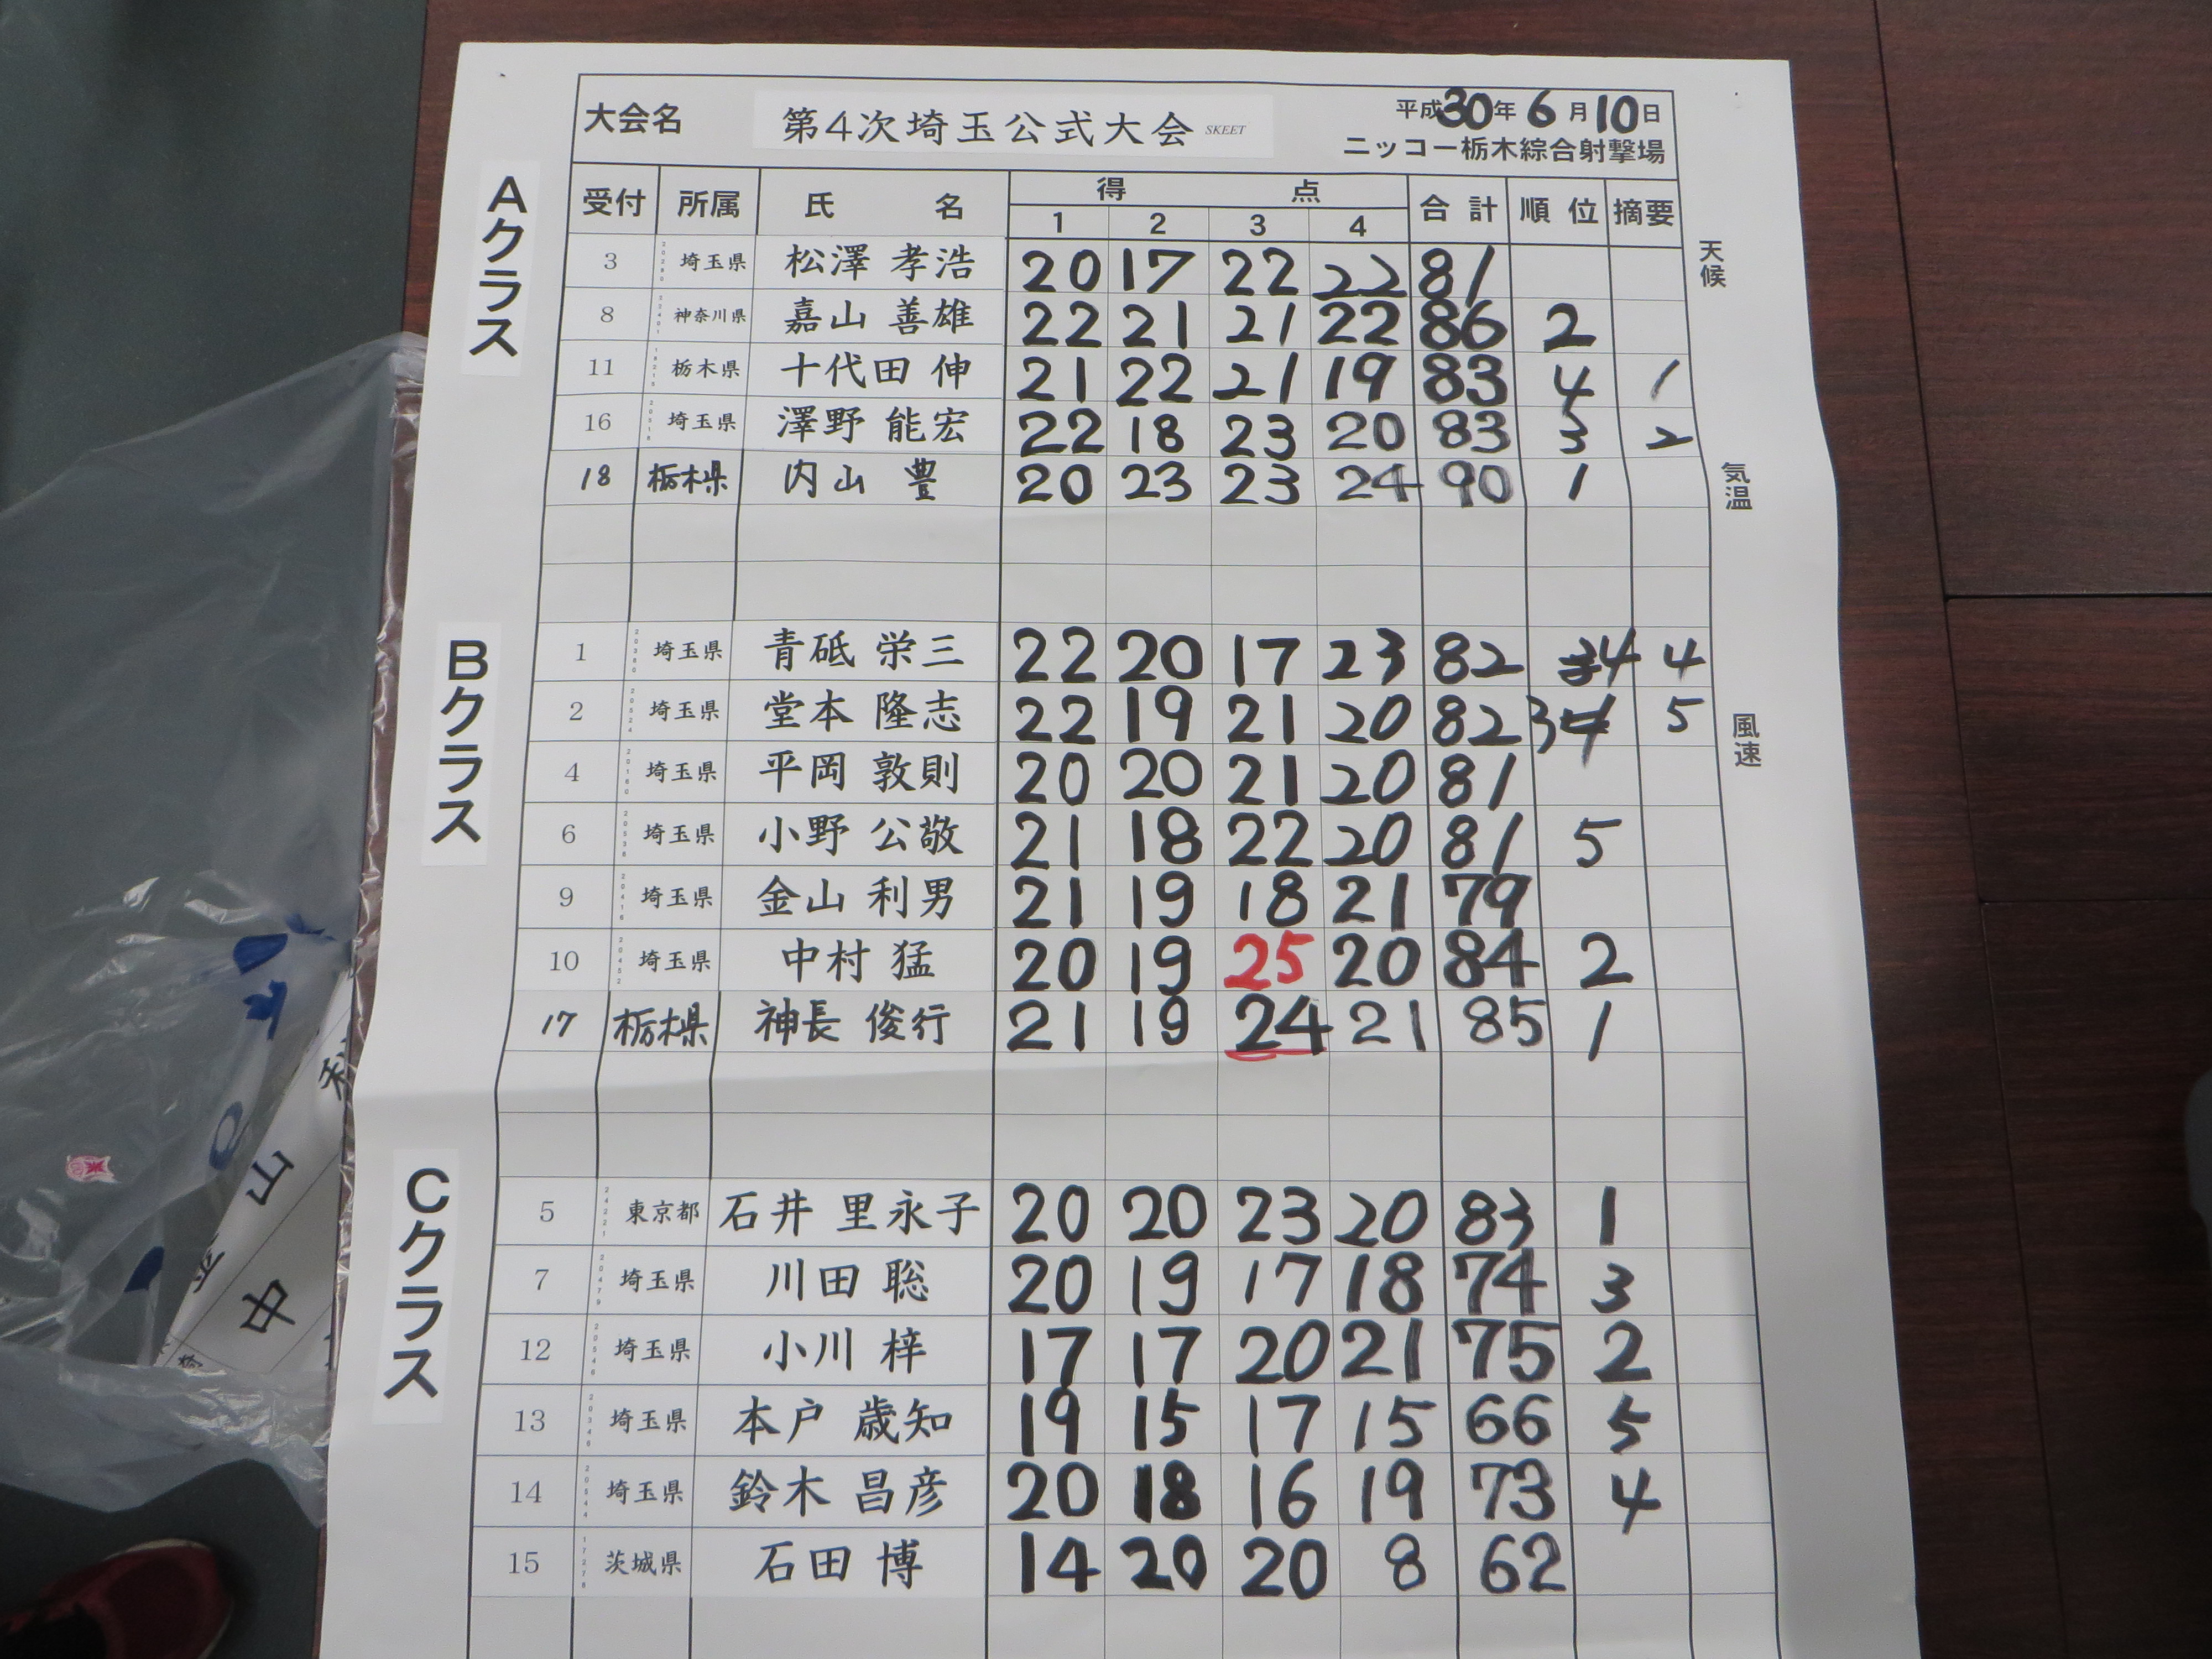 大会名 第4次埼玉公式大会 SKEET 平成30年6月10日
ニッコー栃木綜合射撃場
Aクラス
受付 所属 氏名 得点 合計 順位 摘要
1 2 3 4
天候
3 埼玉県 松澤 孝浩 20 17 22 22 81
8 神奈川県 嘉山 善雄 22 21 21 22 86 2
11 栃木県 十代田 伸 21 22 21 19 83 4 1
16 埼玉県 澤野 能宏 22 18 23 20 83 3 2
18 栃木県 内山 豊 20 23 23 24 90 1
気温
Bクラス
1 埼玉県 青砥 栄三 22 20 17 23 82 4 4
2 埼玉県 堂本 隆志 22 19 21 20 82 3 5
風速
4 埼玉県 平岡 敦則 20 20 21 20 81
6 埼玉県 小野 公敬 21 18 22 20 81 5
9 埼玉県 金山 利男 21 19 18 21 79
10 埼玉県 中村 猛 20 19 25 20 84 2
17 栃木県 神長 俊行 21 19 24 21 85 1
Cクラス
5 東京都 石井 里永子 20 20 23 20 83 1
7 埼玉県 川田 聡 20 19 17 18 74 3
12 埼玉県 小川 梓 17 17 20 21 75 2
13 埼玉県 本戸 歳知 19 15 17 15 66 5
14 埼玉県 鈴木 昌彦 20 18 16 19 73 4
15 茨城県 石田 博 14 20 20 8 62
山
中